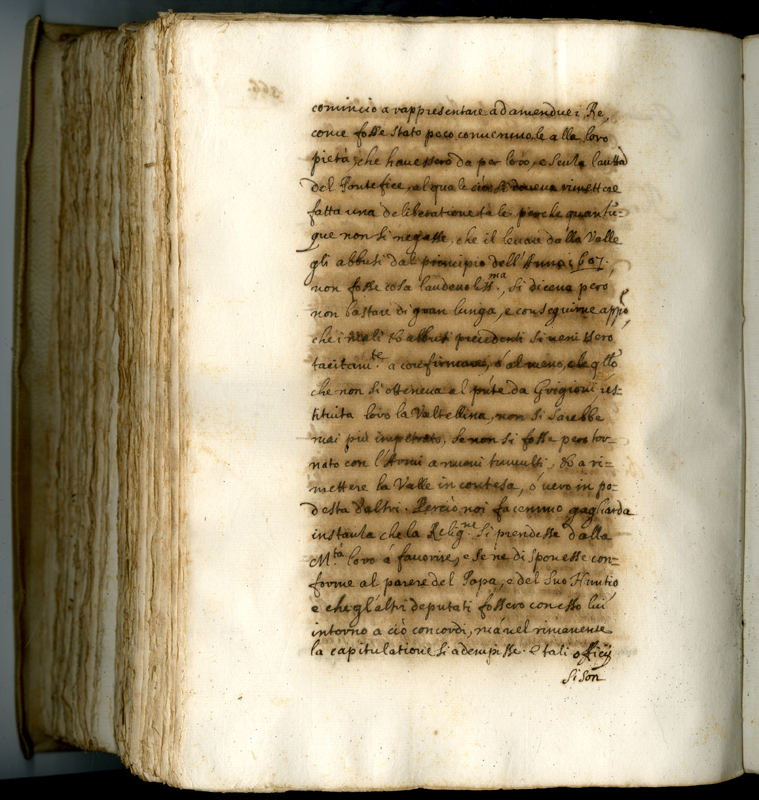 comincio a rappresentare ad amendue i Re,
come fosse stato poco conueneuole alla loro
pietà, che hauessero da per loro, e senza l'autta
del Pontefice, al quale ciò si doueua rimettere
fatta una deliberatione tale. perche quantu=
que non si negasse, che il leuare dalla Valle
gli abbusi dal principio dell'Anno 1607.
non fosse cosa laudeuoliss.ma, si diceua pero
non bastare di gran lunga, e conseguirne appo,
che i mali et abbusi precedenti si uenissero
tacitam.te a confirmare, ó almeno, che q.llo
che non si otteneua al pnte da Grigioni, res=
tituita loro la Valtellina, non si sarebbe
mai più impetrato, se non si fosse pero tor=
nato con l'Armi a nuoui tumulti, et a ri=
mettere la Valle in contesa, ó uero in po=
desta d'altri. Perciò noi facemmo gagliarda
instanza che la Relig.ne si prendesse dalla
M.tà loro á fauorire, e se ne disponesse con=
forme al parere del Papa, e del suo Nuntio
e che gl'altri deputati fossero con esso lui
intorno a ciò concordi, má nel rimanente
la capitulatione si adempisse. E tali officij
si son